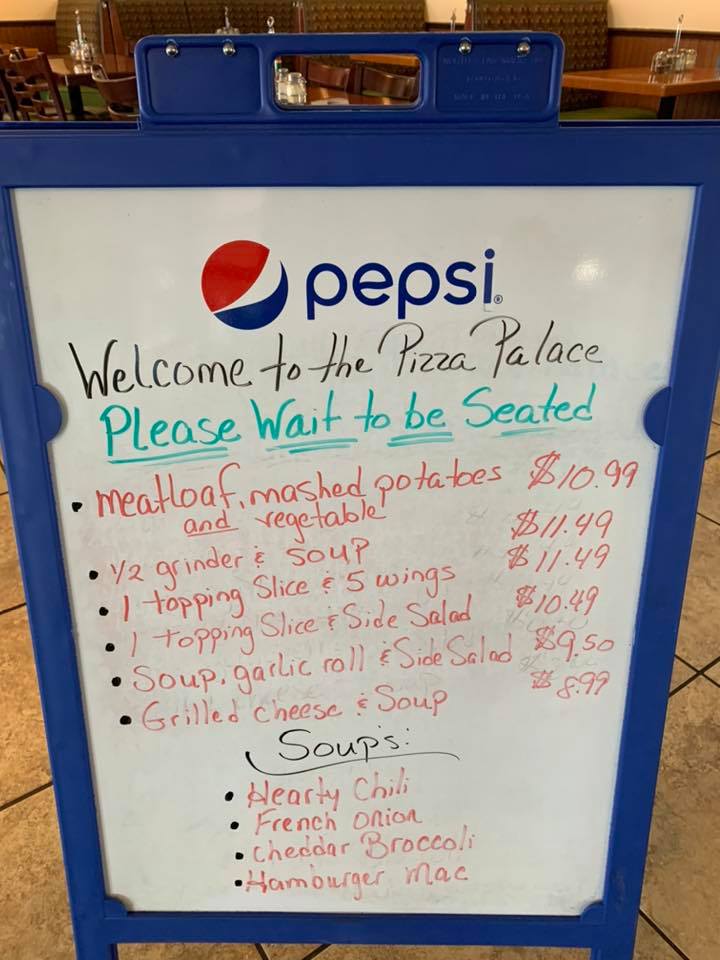 pepsi®
Welcome to the Pizza Palace
Please Wait to be Seated
• meatloaf, mashed potatoes $10.99
and vegetable
• 1/2 grinder & soup $11.49
• 1 topping Slice & 5 wings $11.49
• 1 topping Slice & Side Salad $10.49
• Soup, garlic roll & Side Salad $9.50
• Grilled Cheese & Soup $8.99
Soup's:
• Hearty Chili
• French Onion
• Cheddar Broccoli
• Hamburger Mac